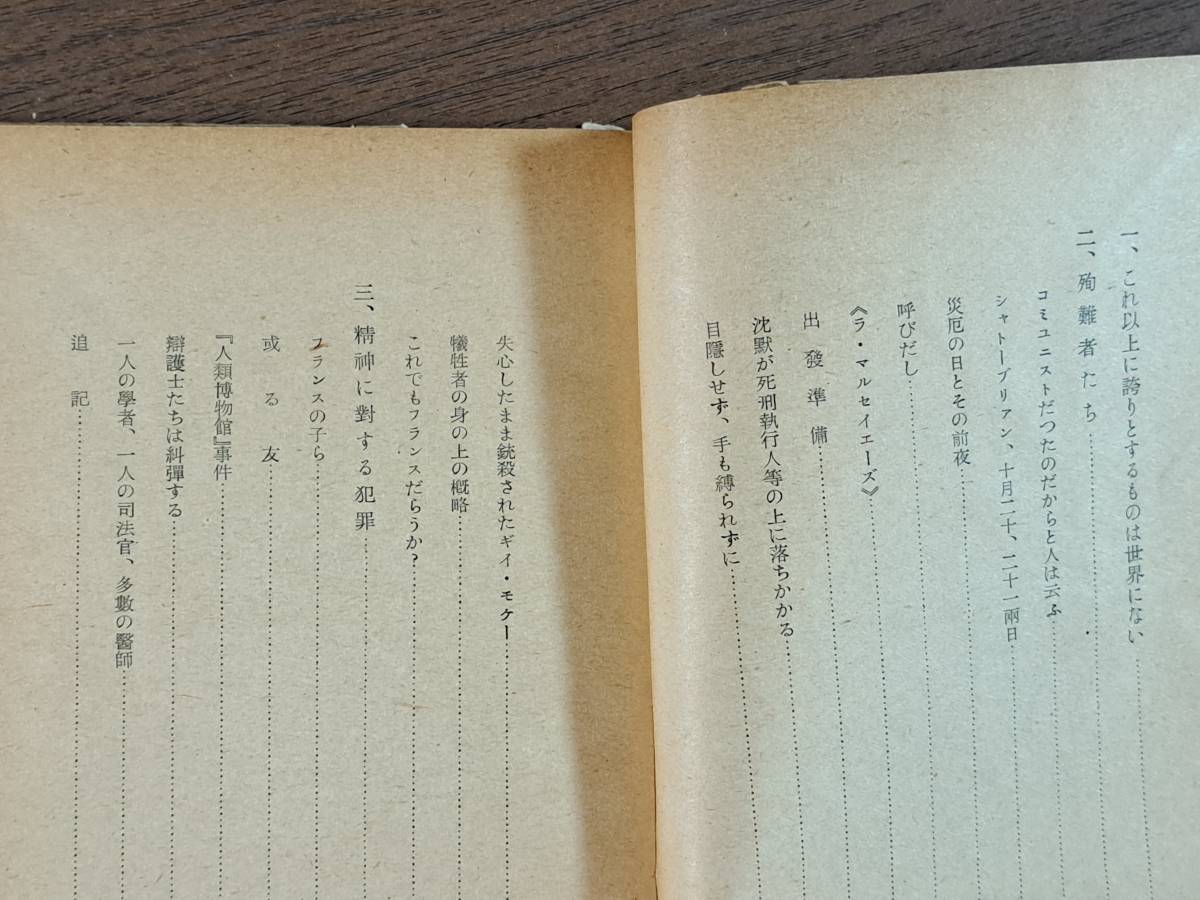 一、これ以上に誇りとするものは世界にない
二、殉難者たち
コミユニストだつたのだからと人は云ふ
シャトーブリアン、十月二十、二十一兩日
災厄の日とその前夜
呼びだし
《ラ・マルセイエーズ》
出發準備
沈默が死刑執行人等の上に落ちかかる
目隱しせず、手も縛られずに
失心したまま銃殺されたギイ・モケー
犧牲者の身の上の概略
これでもフランスだらうか？
三、精神に對する犯罪
フランスの子ら
或る友
『人類博物館』事件
辯護士たちは糾彈する
一人の學者、一人の司法官、多數の醫師
追記